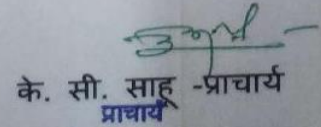 के. सी. साहू -प्राचार्य
प्राचार्य